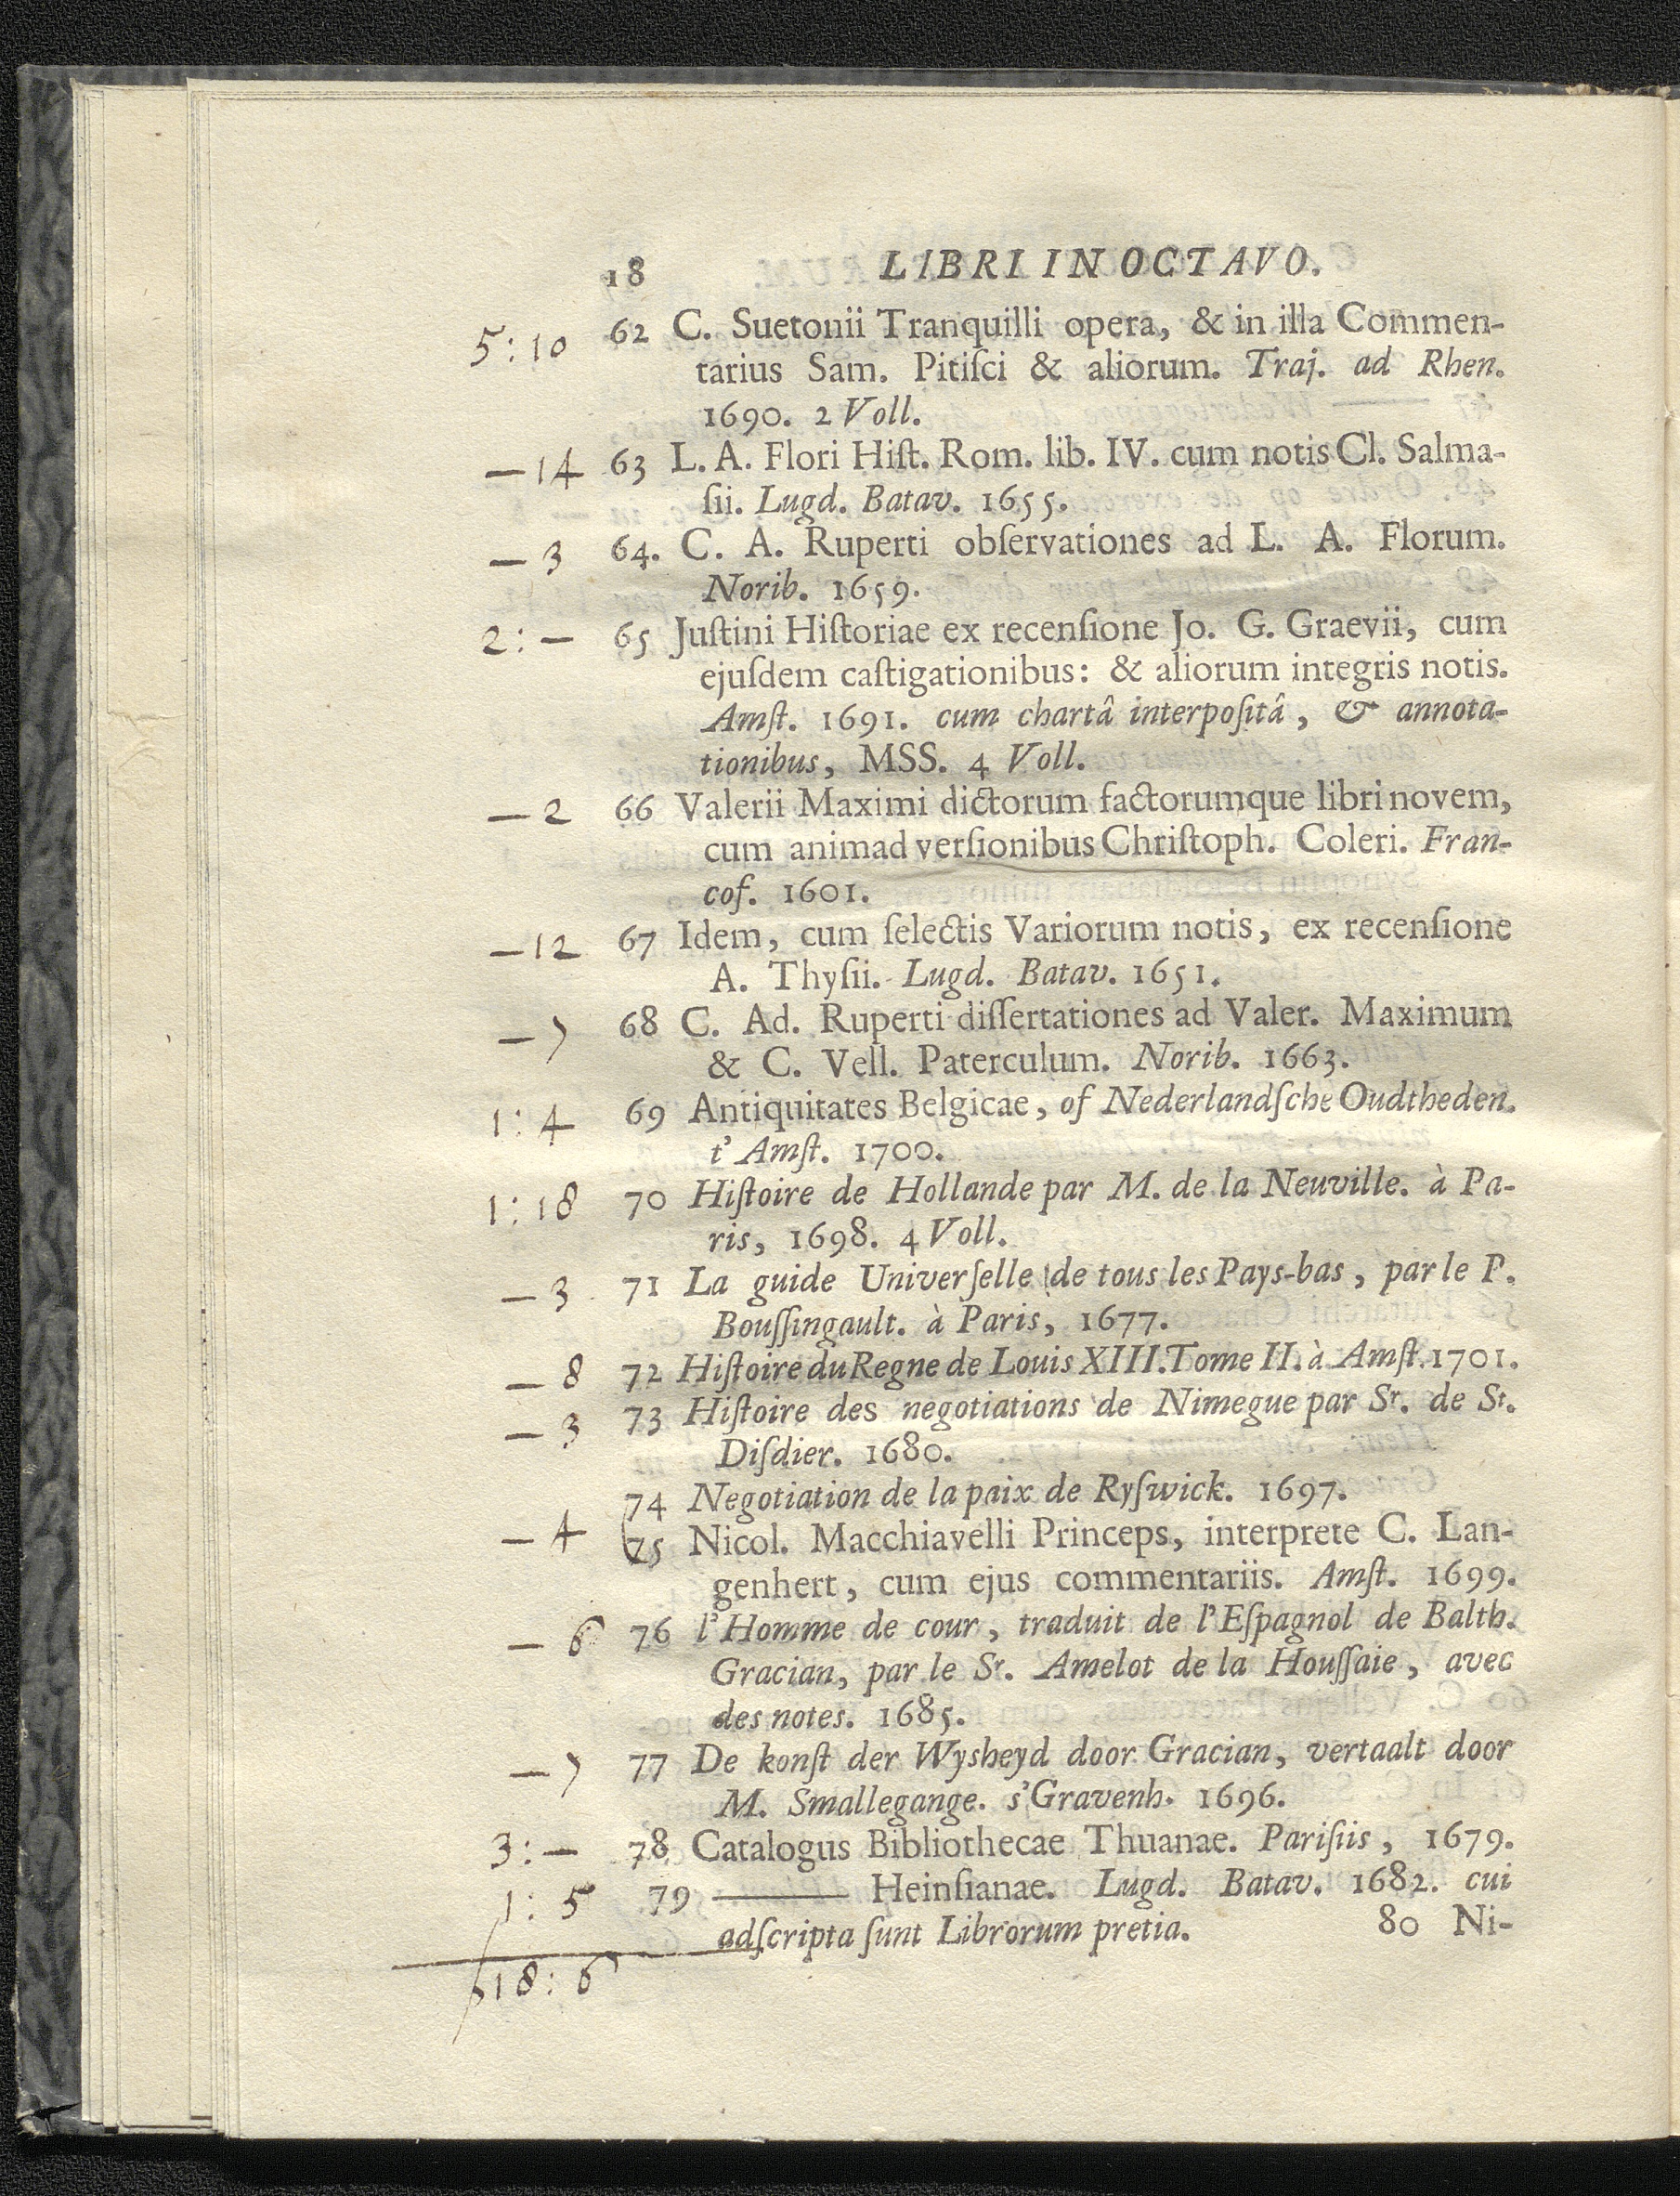 18 LIBRI IN OCTAVO.
5:10 62 C. Suetonii Tranquilli opera, & in illa Commen-
tarius Sam. Pitiſci & aliorum. Traj. ad Rhen.
1690. 2 Voll.
—14 63 L. A. Flori Hiſt. Rom. lib. IV. cum notis Cl. Salma-
ſii. Lugd. Batav. 1655.
—3 64. C. A. Ruperti obſervationes ad L. A. Florum.
Norib. 1659.
2:— 65 Juſtini Hiſtoriae ex recenſione Jo. G. Graevii, cum
ejuſdem caſtigationibus: & aliorum integris notis.
Amſt. 1691. cum chartâ interpoſitâ, & annota-
tionibus, MSS. 4 Voll.
—2 66 Valerii Maximi dictorum factorumque libri novem,
cum animad verſionibus Chriſtoph. Coleri. Fran-
cof. 1601.
—12 67 Idem, cum ſelectis Variorum notis, ex recenſione
A. Thyſii. Lugd. Batav. 1651.
—7 68 C. Ad. Ruperti diſſertationes ad Valer. Maximum
& C. Vell. Paterculum. Norib. 1663.
1:4 69 Antiquitates Belgicae, of Nederlandſche Oudtheden.
t' Amſt. 1700.
1:18 70 Hiſtoire de Hollande par M. de la Neuville. à Pa-
ris, 1698. 4 Voll.
—3 71 La guide Univerſelle de tous les Pays-bas, par le P.
Bouſſingault. à Paris, 1677.
—8 72 Hiſtoire du Regne de Louis XIII. Tome II. à Amſt. 1701.
—3 73 Hiſtoire des negotiations de Nimegue par Sr. de St.
Diſdier. 1680.
74 Negotiation de la paix de Ryſwick. 1697.
—4 75 Nicol. Macchiavelli Princeps, interprete C. Lan-
genhert, cum ejus commentariis. Amſt. 1699.
—6 76 l'Homme de cour, traduit de l'Eſpagnol de Balth.
Gracian, par le Sr. Amelot de la Houſſaie, avec
des notes. 1685.
—7 77 De konſt der Wysheyd door Gracian, vertaalt door
M. Smallegange. s'Gravenh. 1696.
3:— 78 Catalogus Bibliothecae Thuanae. Pariſiis, 1679.
1:5 79 ——— Heinſianae. Lugd. Batav. 1682. cui
adſcripta ſunt Librorum pretia. 80 Ni-
18:6